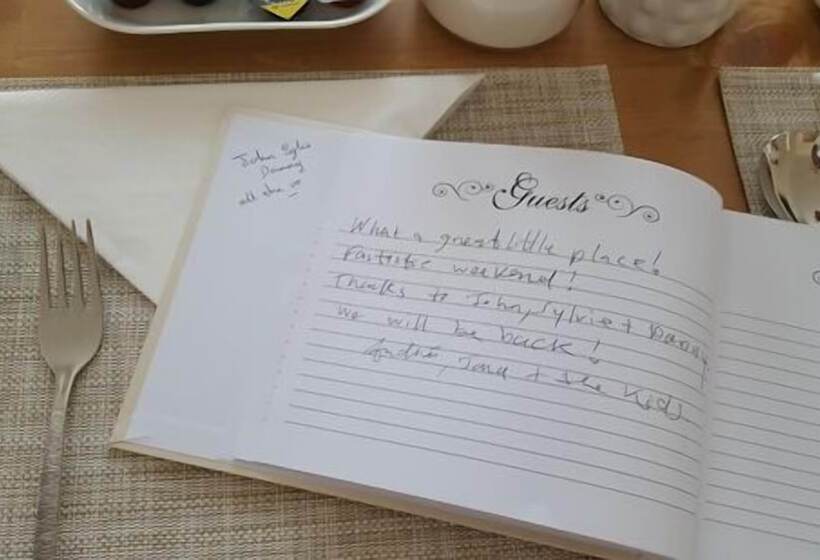 John Sylvie
Danny
all the
Guests
What a great little place!
Fantastic weekend!
Thanks to John, Sylvie + Danny
We will be back!
André, Jane + the kids